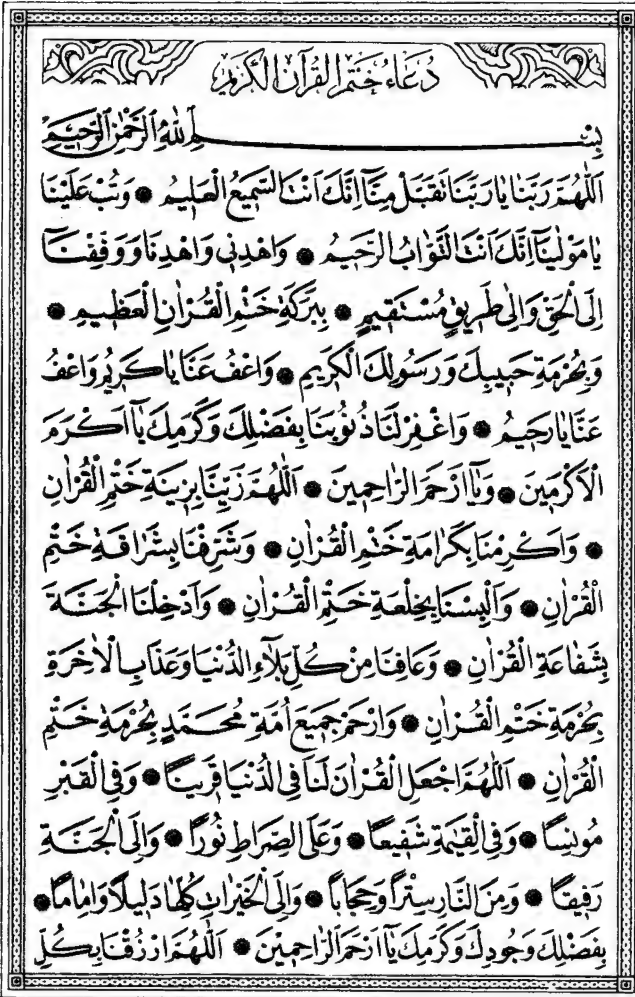 دُعَاءُ خَتْمِ الْقُرْآنِ الْكَرِيمِ
بِسْمِ اللّٰهِ الرَّحْمٰنِ الرَّحِيمِ
اَللّٰهُمَّ رَبَّنَا يَا رَبَّنَا تَقَبَّلْ مِنَّٓا اِنَّكَ اَنْتَ السَّمٖيعُ الْعَلٖيمُ ❁ وَتُبْ عَلَيْنَا
يَا مَوْلٰينَٓا اِنَّكَ اَنْتَ التَّوَّابُ الرَّحٖيمُ ❁ وَاهْدِنٖى وَاهْدِنَا وَوَفِّقْنَٓا
اِلَى الْحَقِّ وَاِلٰى طَرٖيقٍ مُسْتَقٖيمٍ ❁ بِبَرَكَةِ خَتْمِ الْقُرْاٰنِ الْعَظٖيمِ ❁
وَبِحُرْمَةِ حَبٖيبِكَ وَرَسُولِكَ الْكَرٖيمِ ❁ وَاعْفُ عَنَّا يَا كَرٖيمُ وَاعْفُ
عَنَّا يَا رَحٖيمُ ❁ وَاغْفِرْ لَنَا ذُنُوبَنَا بِفَضْلِكَ وَكَرَمِكَ يَٓا اَكْرَمَ
الْاَكْرَمٖينَ ❁ وَيَٓا اَرْحَمَ الرَّاحِمٖينَ ❁ اَللّٰهُمَّ زَيِّنَّا بِزٖينَةِ خَتْمِ الْقُرْاٰنِ
❁ وَاَكْرِمْنَا بِكَرَامَةِ خَتْمِ الْقُرْاٰنِ ❁ وَشَرِّفْنَا بِشَرَافَةِ خَتْمِ
الْقُرْاٰنِ ❁ وَاَلْبِسْنَا بِخِلْعَةِ خَتْمِ الْقُرْاٰنِ ❁ وَاَدْخِلْنَا الْجَنَّةَ
بِشَفَاعَةِ الْقُرْاٰنِ ❁ وَعَافِنَا مِنْ كُلِّ بَلَٓاءِ الدُّنْيَا وَعَذَابِ الْاٰخِرَةِ
بِحُرْمَةِ خَتْمِ الْقُرْاٰنِ ❁ وَارْحَمْ جَمٖيعَ اُمَّةِ مُحَمَّدٍ بِحُرْمَةِ خَتْمِ
الْقُرْاٰنِ ❁ اَللّٰهُمَّ اجْعَلِ الْقُرْاٰنَ لَنَا فِى الدُّنْيَا قَرٖينًا ❁ وَفِى الْقَبْرِ
مُونِسًا ❁ وَفِى الْقِيٰمَةِ شَفٖيعًا ❁ وَعَلَى الصِّرَاطِ نُورًا ❁ وَاِلَى الْجَنَّةِ
رَفٖيقًا ❁ وَمِنَ النَّارِ سِتْرًا وَحِجَابًا ❁ وَاِلَى الْخَيْرَاتِ كُلِّهَا دَلٖيلًا وَاِمَامًا ❁
بِفَضْلِكَ وَجُودِكَ وَكَرَمِكَ يَٓا اَرْحَمَ الرَّاحِمٖينَ ❁ اَللّٰهُمَّ ارْزُقْنَا بِكُلِّ